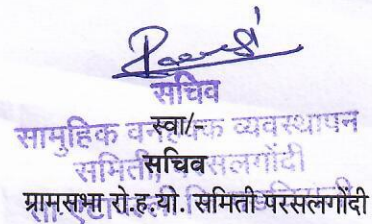 सचिव
स्वा/-
सामुहिक वनहक्क व्यवस्थापन
सचिव
समिती परसलगोंदी
ग्रामसभा रो.ह.यो. समिती परसलगोंदी